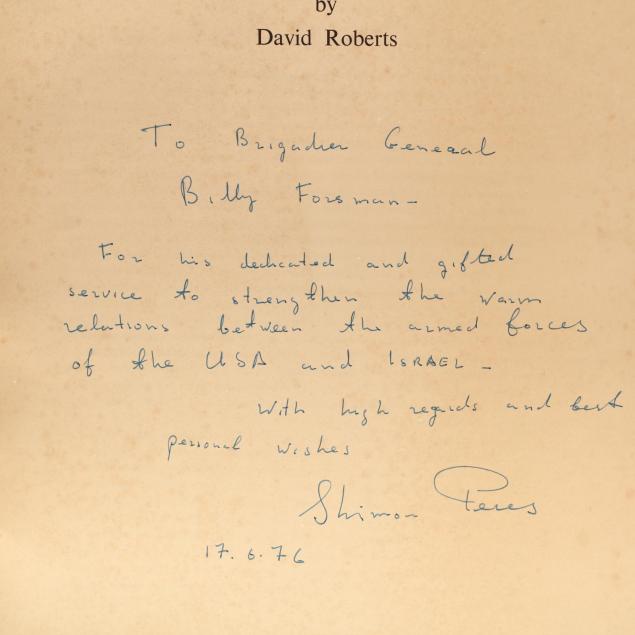 by
David Roberts
To Brigadier General
Billy Forsman-
For his dedicated and gifted
service to strengthen the warm
relations between the armed forces
of the USA and ISRAEL -
With high regards and best
personal wishes
Shimon Peres
17.6.76